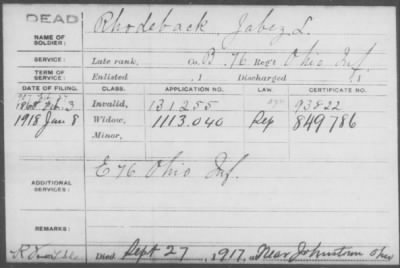 DEAD
NAME OF SOLDIER: Rhodeback, Jabez L.
SERVICE: Late rank, Co. B. 76 Reg't Ohio Inf.
TERM OF SERVICE: Enlisted , 1 Discharged , 1
DATE OF FILING. CLASS. APPLICATION NO. LAW. CERTIFICATE NO.
1868 Feb. 3 Invalid, 131255 93822
1918 Jan 8 Widow, 1113.040 Rep 849786
Minor,
ADDITIONAL SERVICES: E 76 Ohio Inf.
REMARKS:
Died Sept 27, 1917, at Near Johnstown Ohio